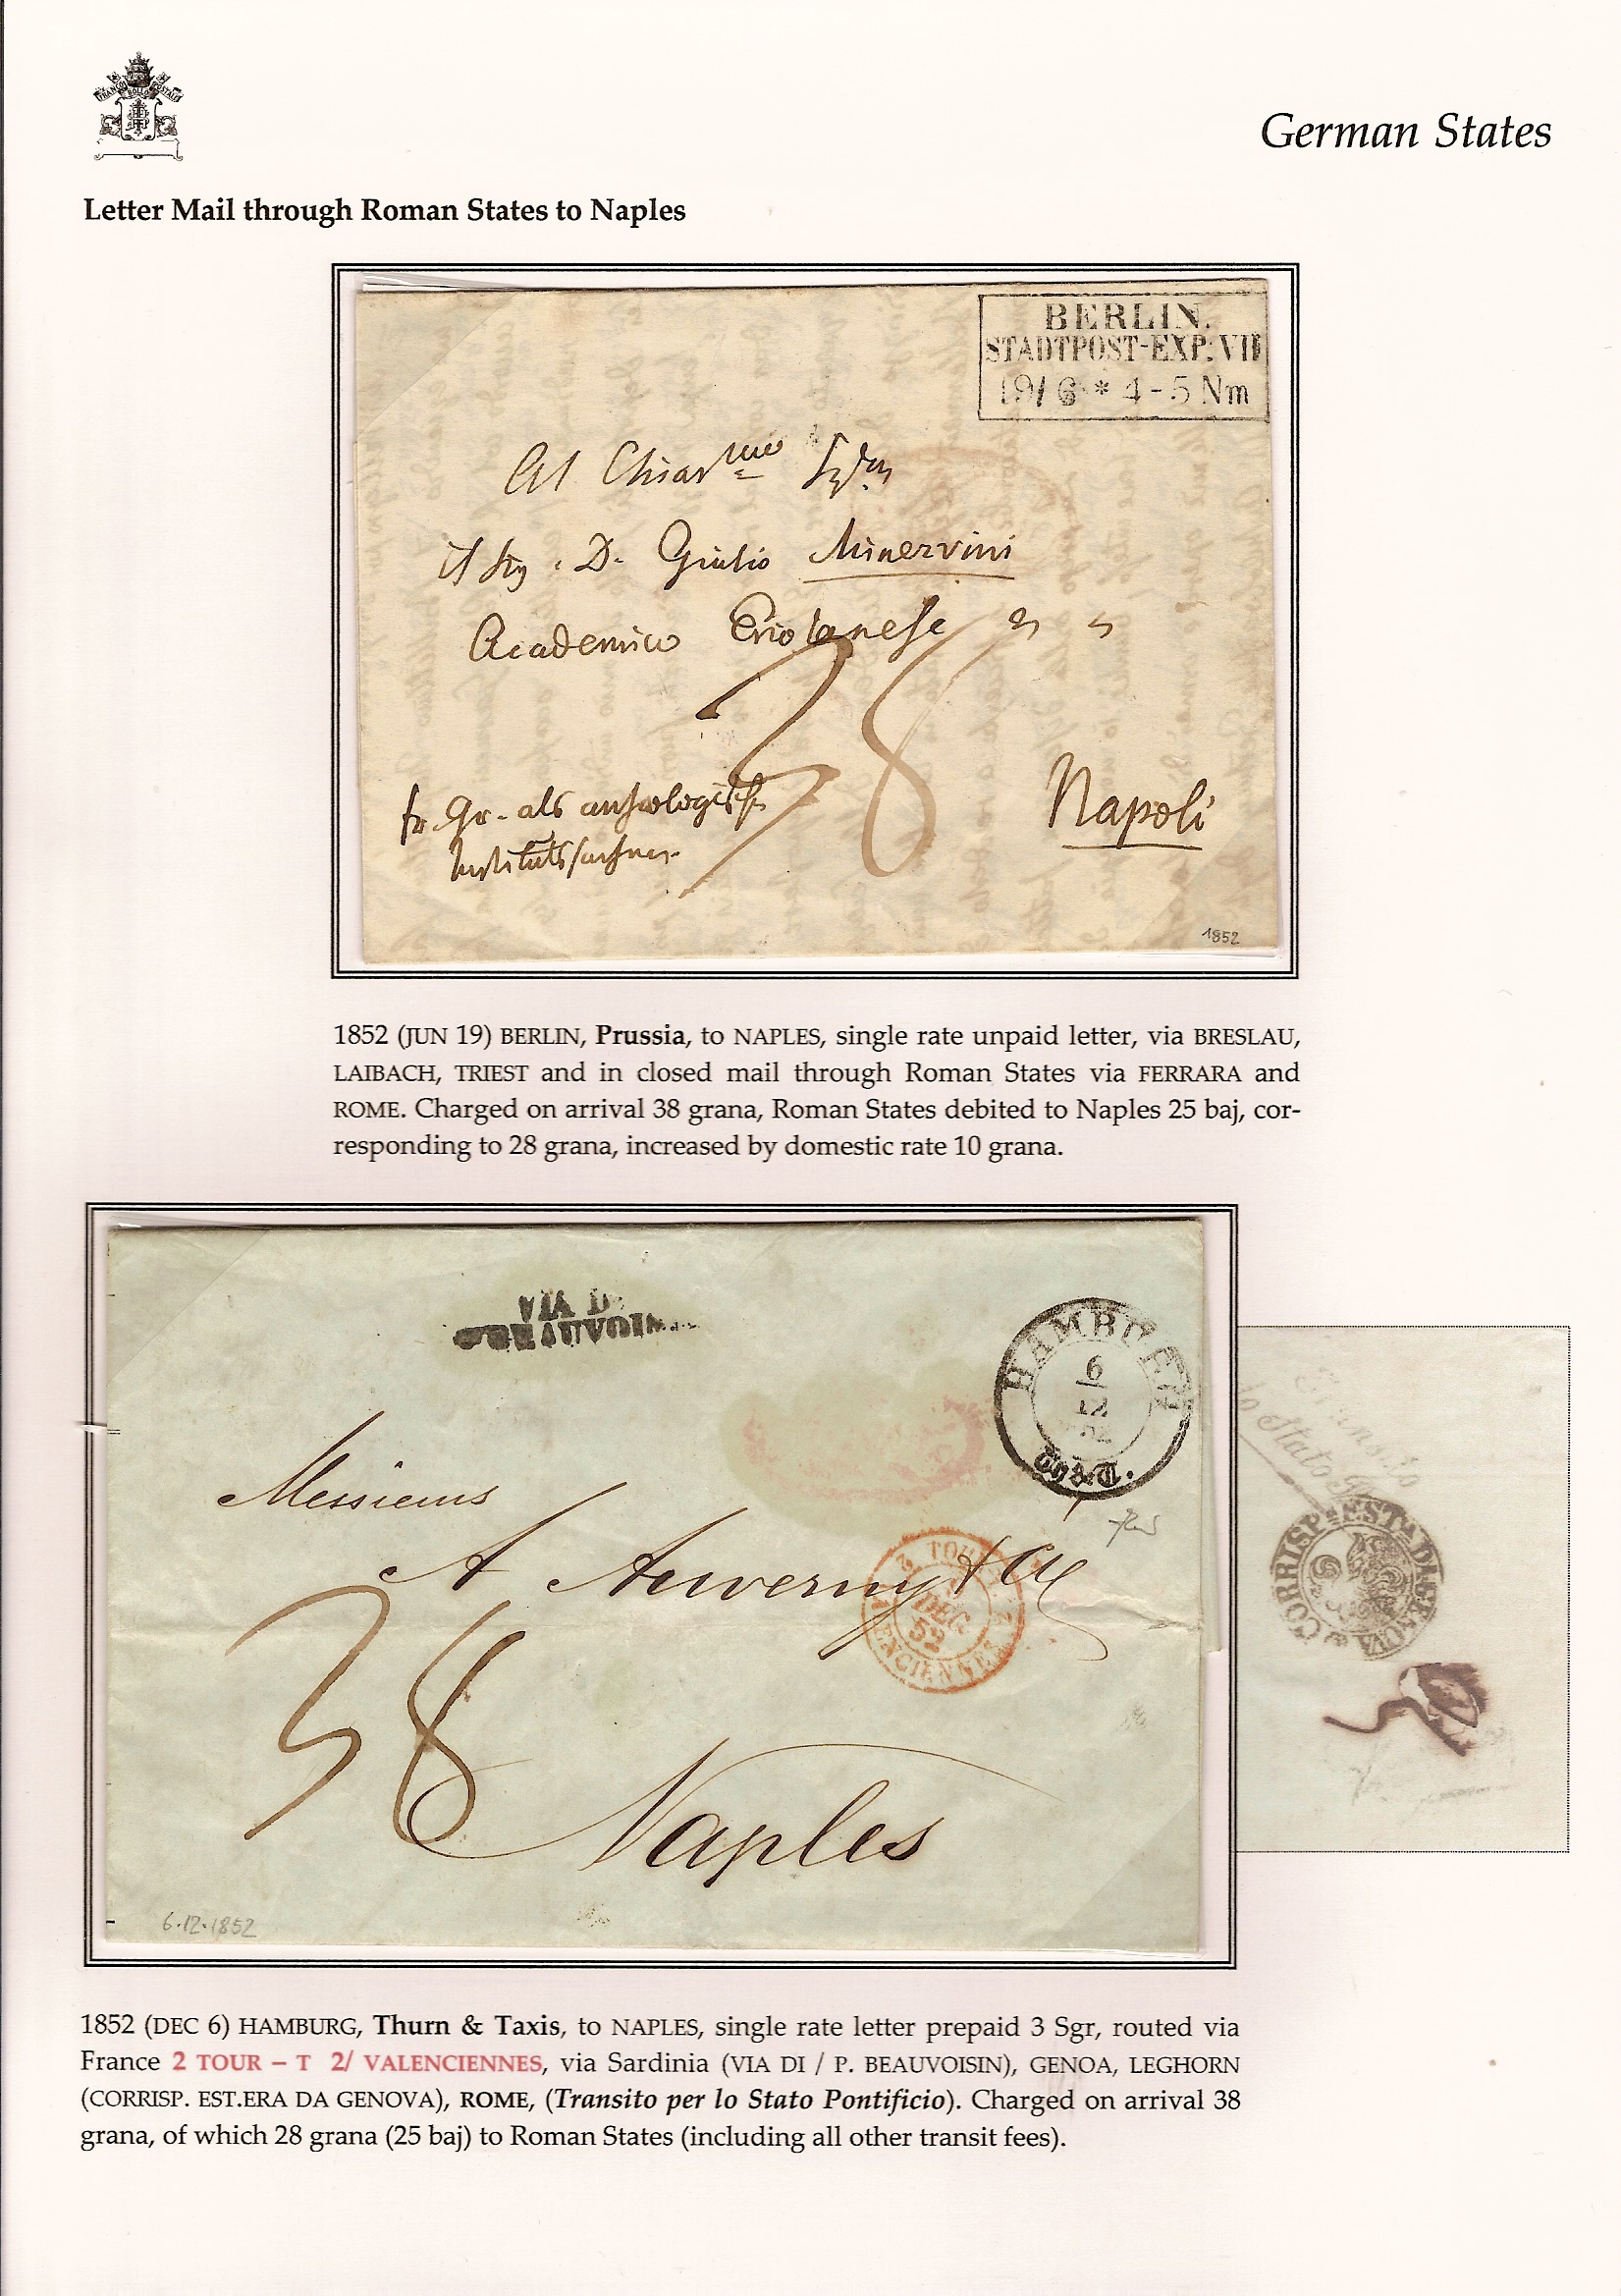 FRANCO BOLLO POSTALE
German States
Letter Mail through Roman States to Naples
BERLIN.
STADTPOST-EXP: VII
19/6 * 4-5 Nm
Al Chiarmo
il Sig. D. Giulio Minervini
Academico
38
fr. Gr. als
Napoli
1852
1852 (JUN 19) BERLIN, Prussia, to NAPLES, single rate unpaid letter, via BRESLAU,
LAIBACH, TRIEST and in closed mail through Roman States via FERRARA and
ROME. Charged on arrival 38 grana, Roman States debited to Naples 25 baj, cor-
responding to 28 grana, increased by domestic rate 10 grana.
VIA D
BEAUVOIS
HAMBURG
6
12
Th&T.
Messieurs
A Auverny & Co
2 TOUR
DEC
52
VALENCIENNES 2
38
Naples
6.12.1852
Transito
lo Stato P
CORRISP. EST.A DA GENOVA
1852 (DEC 6) HAMBURG, Thurn & Taxis, to NAPLES, single rate letter prepaid 3 Sgr, routed via
France 2 TOUR – T 2/ VALENCIENNES, via Sardinia (VIA DI / P. BEAUVOISIN), GENOA, LEGHORN
(CORRISP. EST.ERA DA GENOVA), ROME, (Transito per lo Stato Pontificio). Charged on arrival 38
grana, of which 28 grana (25 baj) to Roman States (including all other transit fees).